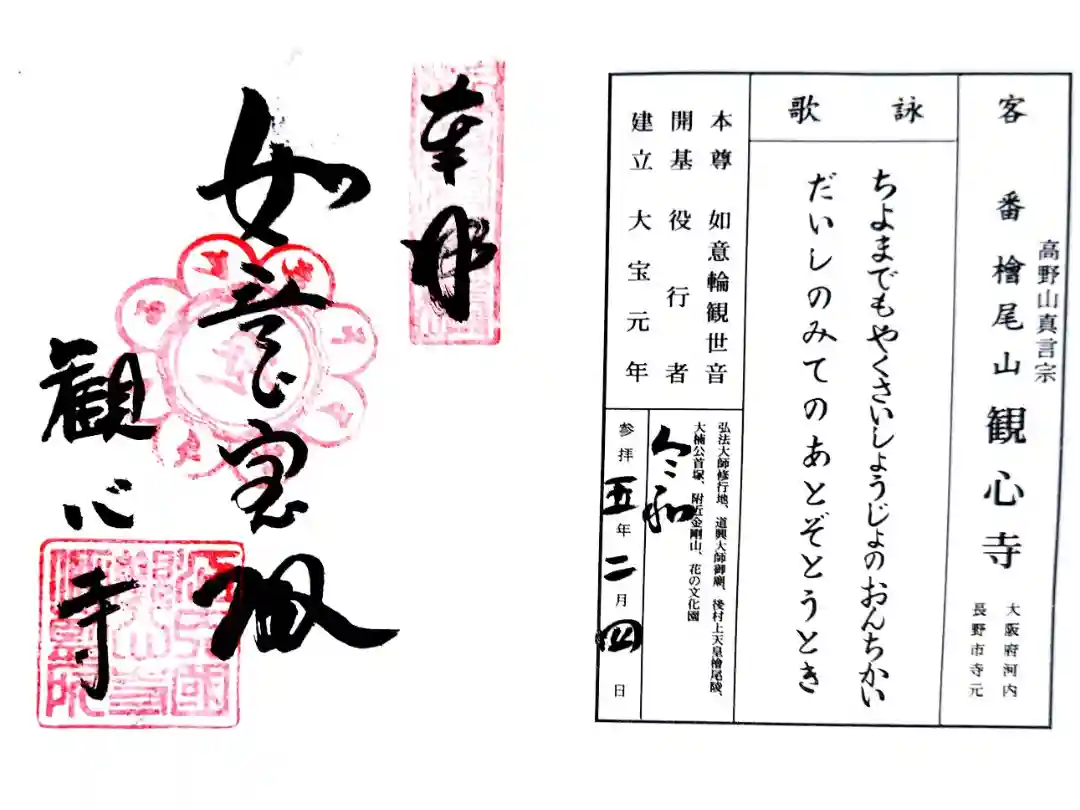 高野山真言宗
客番 檜尾山 観心寺
大阪府河内
長野市寺元
詠歌
ちよまでもやくさいしょうじょのおんちかい
だいしのみてのあとぞとうとき
本尊 如意輪観世音
開基 役行者
建立 大宝元年
弘法大師修行地、道興大師御廟、後村上天皇檜尾陵、
大楠公首塚、附近金剛山、花の文化園
令和
参拝 五年 二月 四日
奉拝
如意宝殿
観心寺